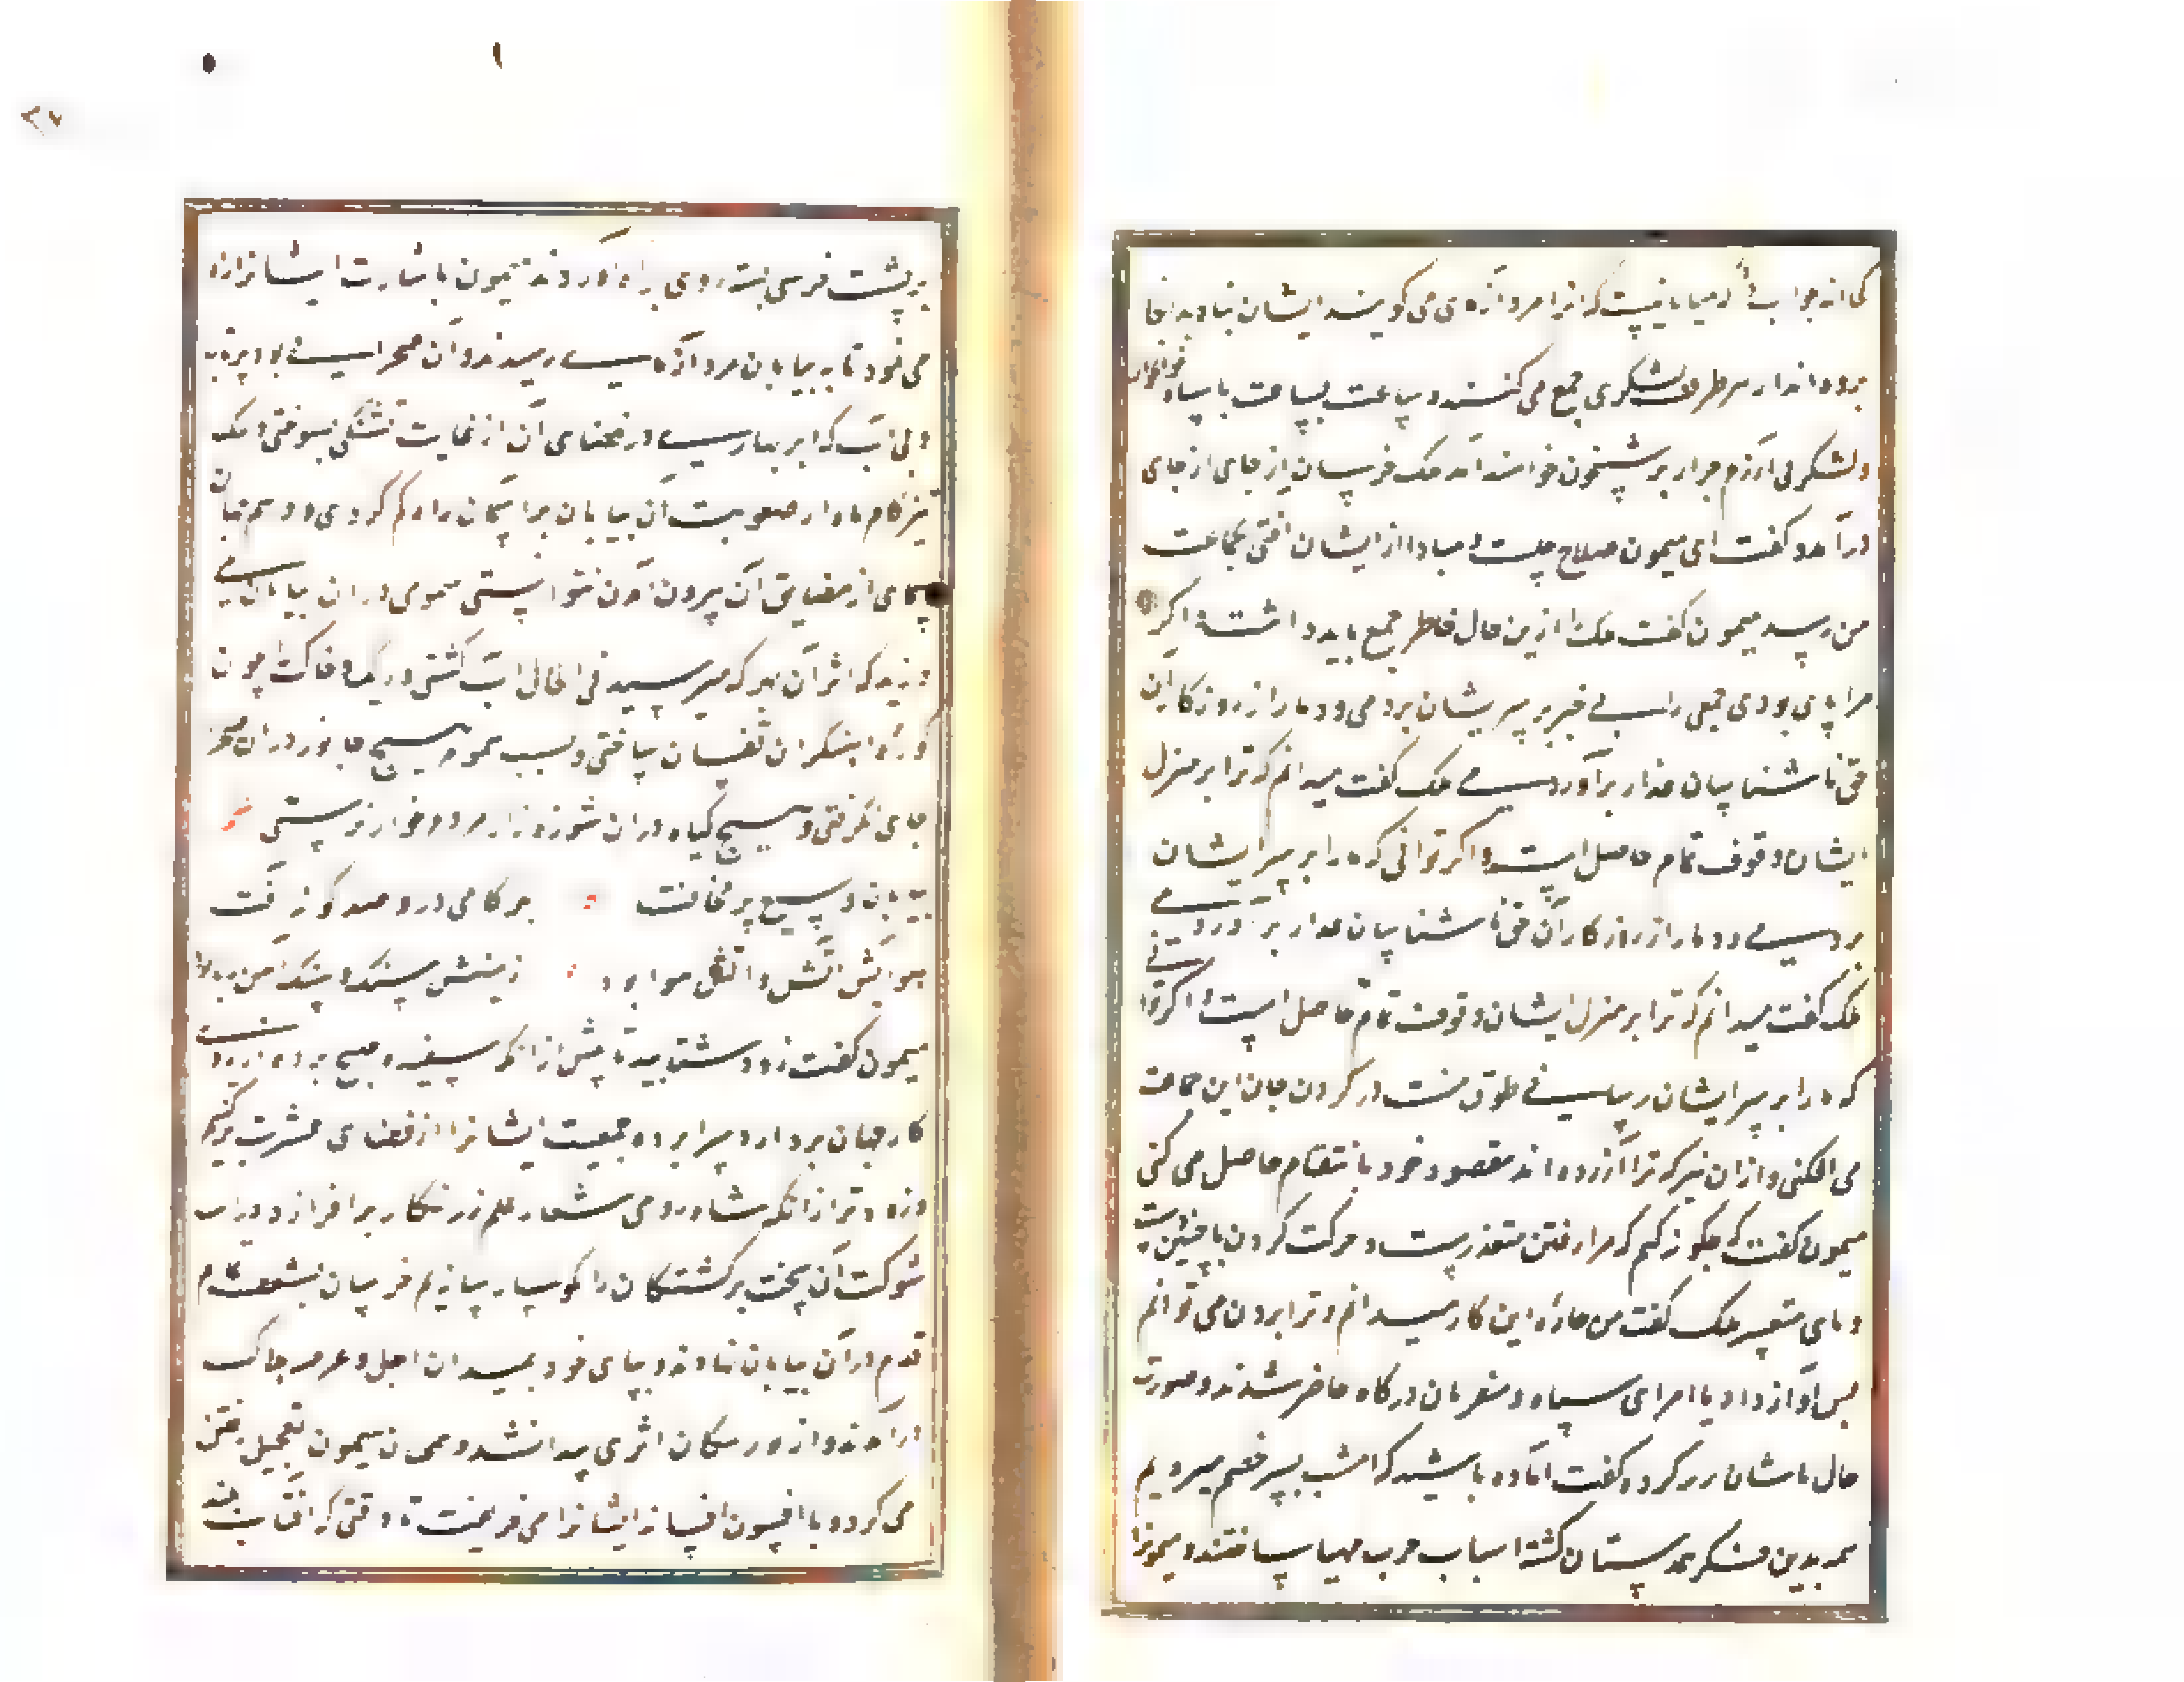 کی اند جواب داد میا بانیست که انرا مردآزمای می گویند ایشان پناه بدانجا
برده اند از هر طرف لشکری جمع می کنند و ساعت بساعت با سپاه خونخوار
و لشکر بی آزرم جرار بر شبیخون خواهند آمد ملک خرسان از جای از جای
درآمد و گفت ای میمون صلاح چیست مبادا از ایشان آفتی بجماعت
من رسد میمون گفت ملک را ازین حال خاطر جمع باید داشت اگر
مرا پای بودی جمعی را بی خبر بر سر ایشان بردمی و دمار از روزکار ان
حق ناشناسان غدار برآوردمی ملک گفت میدانم که ترا بر منزل
ایشان وقوف تمام حاصل است و اگر توانی که ما را بر سر ایشان
بردسی و دمار از روزکار آن حق ناشناسان غدار برآوردمی
ملک گفت میدانم که ترا بر منزل ایشان وقوف تمام حاصل است اگر توانی
که ما را بر سر ایشان رسانی طوق منت در گردن جان این جماعت
می افکنی و از ان نیز که ترا آزرده اند مقصود خود بانتقام حاصل می کنی
میمون گفت که چگونه کنم که مرا رفتن متعذرست و حرکت کردن با چنین دست
و پای متعسر ملک گفت من چاره این کار میدانم و ترا بردن می توانم
پس آواز داد تا امرای سپاه و مقربان درگاه حاضر شدند و صورت
حال با ایشان در کرد و گفت آماده باشید که امشب بسر خصم میرویم
همه بدین همداستان گشته اسباب حرب مهیا ساختند و میمونرا
بر پشت خرسی بسته روی براه آوردند میمون باشارت ایشانرا راه
می نمود تا به بیابان مردآزمای رسیدند و آن صحرایی بود پرتاب
و بی آب که ابر بهاری در فضای آن از غایت تشنگی بسوختی و ملک
تیزگام ماه از صعوبت آن بیابان براسمان راه گم کردی و وهم جهان
پیمای از مضایق آن بیرون آمدن نتوانستی سمومی در ان بیابان
وزید که اثر آن بهر که میرسید فی الحال آب گشتی و ریگ و خاک را چون
کوره آهنگران تفسان ساختی و بسبب سموم هیچ جانور در ان صحرا
جای نگرفتی و هیچ گیاه در ان شوره زار مردم خوار نرستی
بیابان وسیع پر مخافت بهر گامی درو صد گونه آفت
هوایش آتش و آتش هوا بود زمینش سنگ و سنگ آهن ربا
میمون گفت زود شتابید تا پیش از انکه سپیده صبح پرده از روی
کار جهان بردارد سرا پرده جمعیت ایشانرا از فضای عشرت برکنیم
و زود تر از انکه شاه رومی شعار علم زرنگار برافرازد و رایت
شوکت آن بخت برگشتگان را نگوسار سازیم خرسان بشعف تمام
قدم در آن بیابان نهادند و بپای خود بمیدان اجل و عرصه هلاک
درآمدند و از دور مکان اثری پیدا نشد و همچنان میمون تعجیل رفتن
می کرد و با افسون افسانه ایشانرا می فریفت تا وقتی که آفتاب بلند